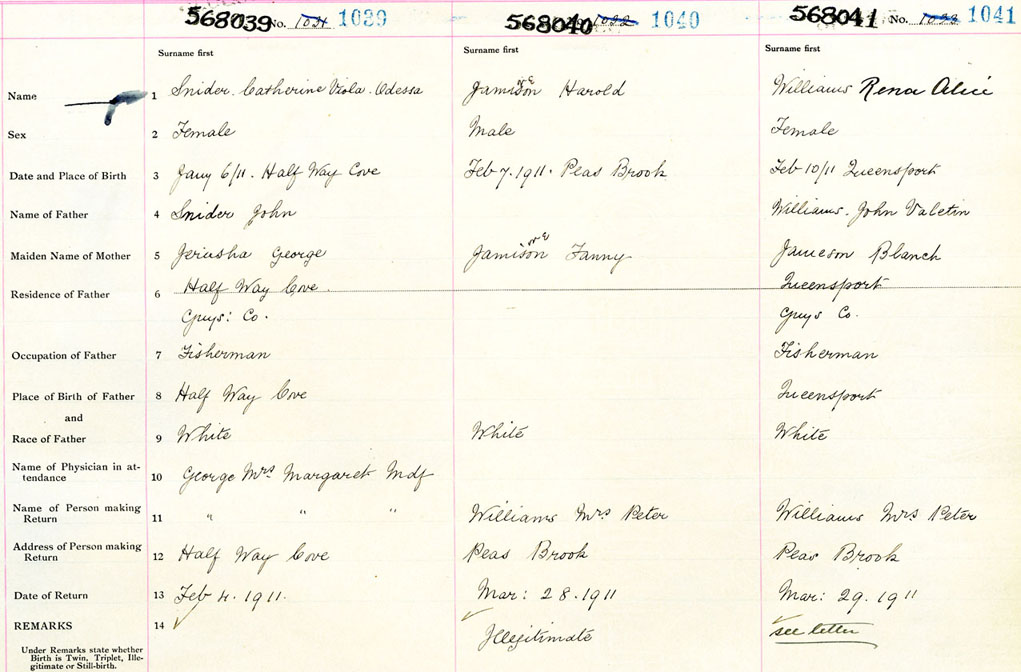 568039 No. 1021 1039 568040 1022 1040 568041 No. 1023 1041
Surname first Surname first Surname first
Name 1 Snider. Catherine Viola. Odessa Jamison Harold Williams Rena Alice
Sex 2 Female Male Female
Date and Place of Birth 3 Jany 6/11. Half Way Cove Feb 7. 1911. Peas Brook Feb 10/11 Queensport
Name of Father 4 Snider John Williams. John Valetin
Maiden Name of Mother 5 Jerusha George Jamison Fanny Jameson Blanch
Residence of Father 6 Half Way Cove. Queensport
Guys: Co. Guys Co.
Occupation of Father 7 Fisherman Fisherman
Place of Birth of Father 8 Half Way Cove Queensport
and
Race of Father 9 White White White
Name of Physician in at-
tendance 10 George Mrs Margaret Mdf
Name of Person making
Return 11 " " " Williams Mrs Peter Williams Mrs Peter
Address of Person making
Return 12 Half Way Cove Peas Brook Peas Brook
Date of Return 13 Feb 4. 1911. Mar: 28. 1911 Mar: 29. 1911
REMARKS 14 Illegitimate see letter
Under Remarks state whether
Birth is Twin, Triplet, Ille-
gitimate or Still-birth.